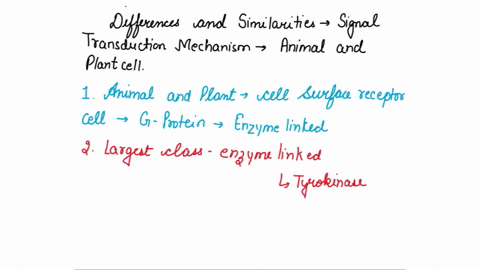 Differences and Similarities → Signal
Transduction Mechanism → Animal and
Plant cell.
1. Animal and Plant → cell surface receptor
cell → G-Protein → Enzyme linked
2. Largest class - enzyme linked
↳ Tyrokinase